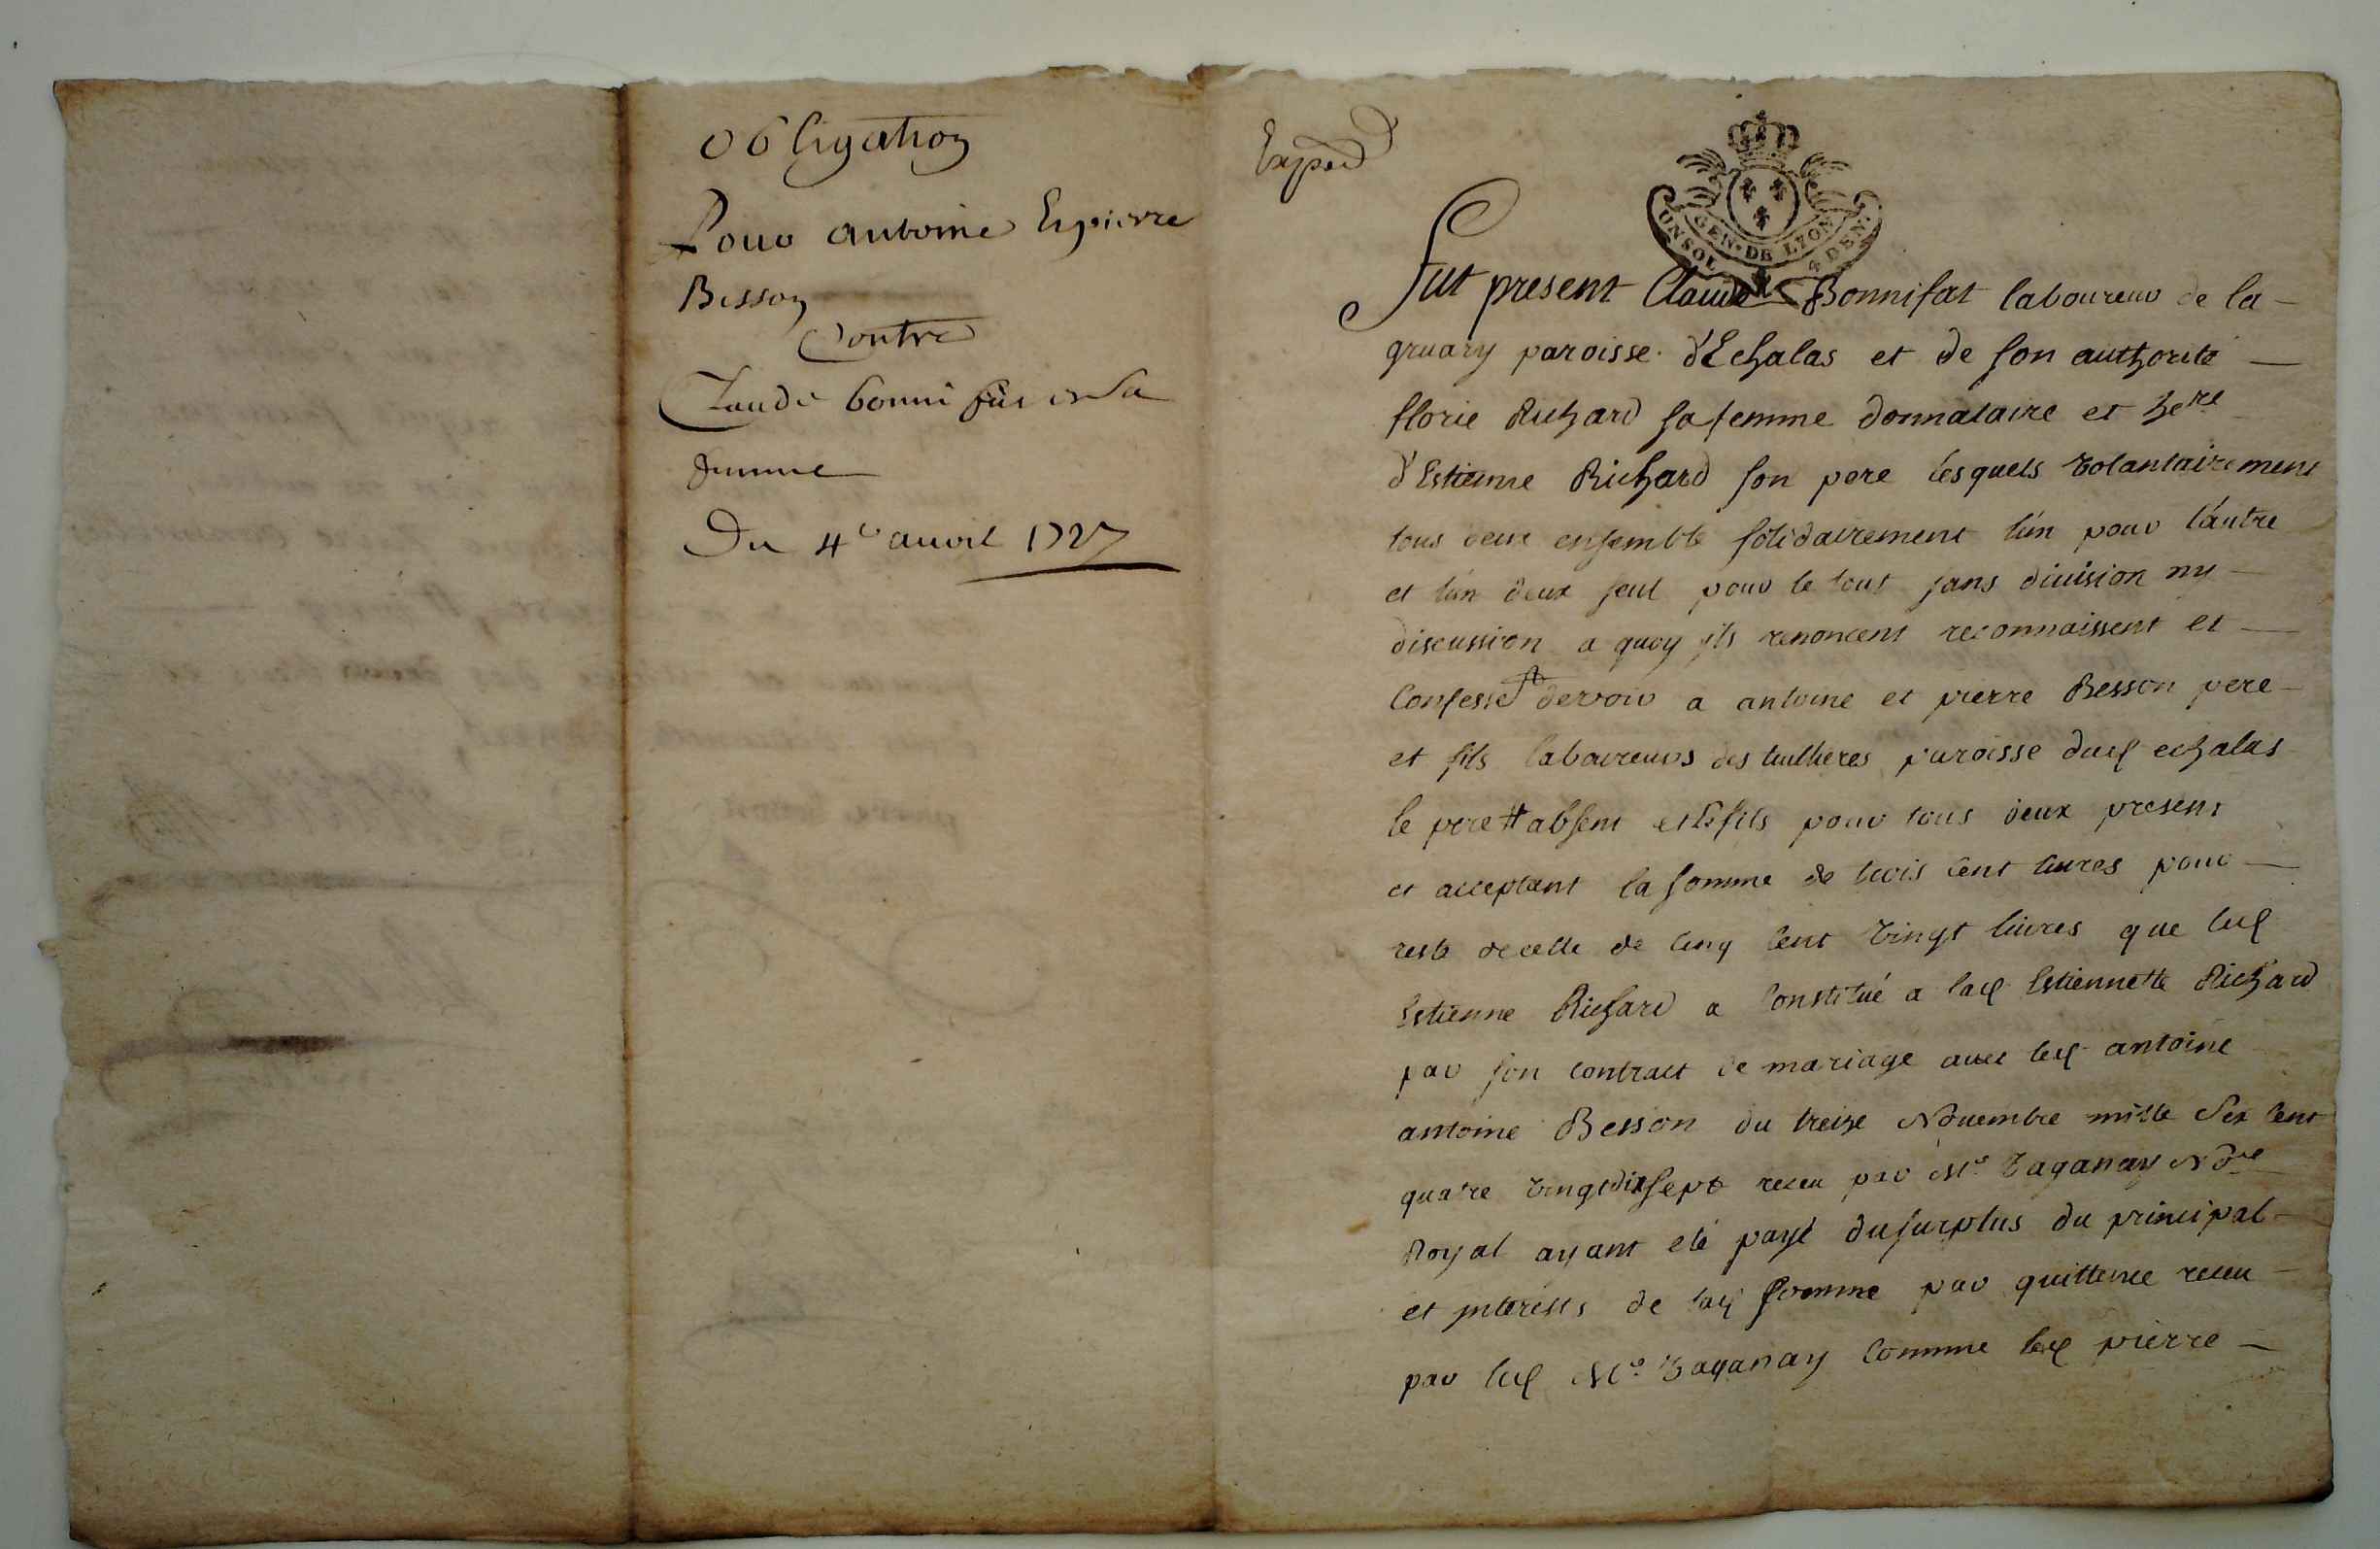 obligation
Pour antoine Espierre
Besson
Contre
Claude bonnifat et sa
femme
Du 4e auvril 1727
Exped
GEN. DE LYON
Fut present Claude Bonnifat laboureur de la
gruary paroisse d'Echalas et de son authorité
florie Richard sa femme donnataire et here
d'Estienne Richard son pere lesquels volantairement
tous deux ensemble solidairement l'un pour l'autre
et l'un deux seul pour le tout sans diuision ny
discussion a quoy ils renoncent reconnaissent et
Confesse devoir a antoine et pierre Besson pere
et fils laboureurs des tuillieres paroisse dud echalas
le pere absent et le fils pour tous deux present
et acceptant la somme de trois cent liures pour
reste de celle de cinq cent vingt liures que led
Estienne Richard a constitué a lad Estiennette Richard
par son contract de mariage auec led antoine
antoine Besson du treize Nouembre mille Six cent
quatre vingt dix sept receu par Me Vaganay Nore
Royal ayant été payé du surplus du principal
et interests de lad somme par quittence receu
par led Me Vaganay comme led pierre